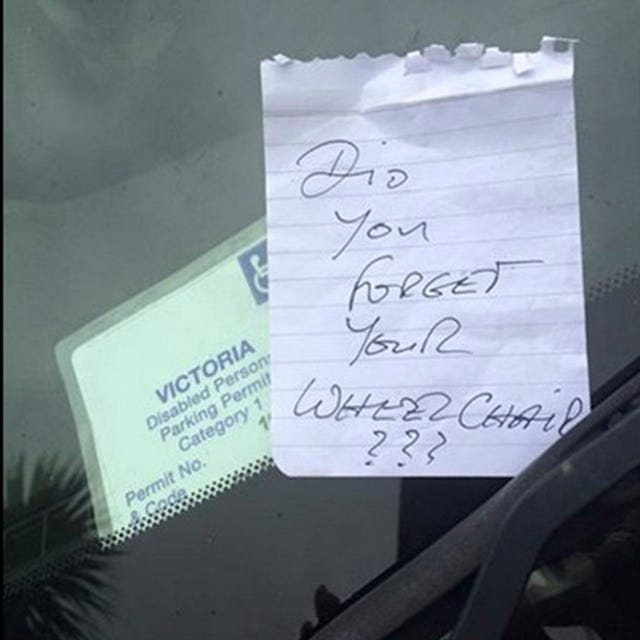 Did
You
FORGET
YouR
WHEELCHAIR
???
VICTORIA
Disabled Person
Parking Permit
Category 1
Permit No.
& Code